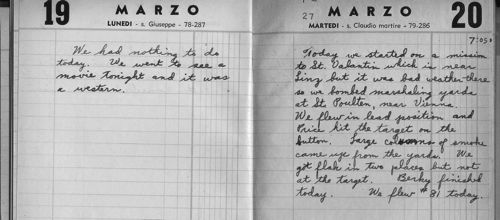 19 MARZO
LUNEDI - s. Giuseppe - 78-287
We had nothing to do
today. We went to see a
movie tonight and it was
a western.
27 MARZO 20
MARTEDI - s. Claudio martire - 79-286
7:05
Today we started on a mission
to St. Valentin which is near
Linz but it was bad weather there
so we bombed marshaling yards
at St. Poulten, near Vienna.
We flew in lead position and
Price hit the target on the
button. Large columns of smoke
came up from the yards. We
got flak in two places but not
at the target. Berky finished
today. We flew #81 today.